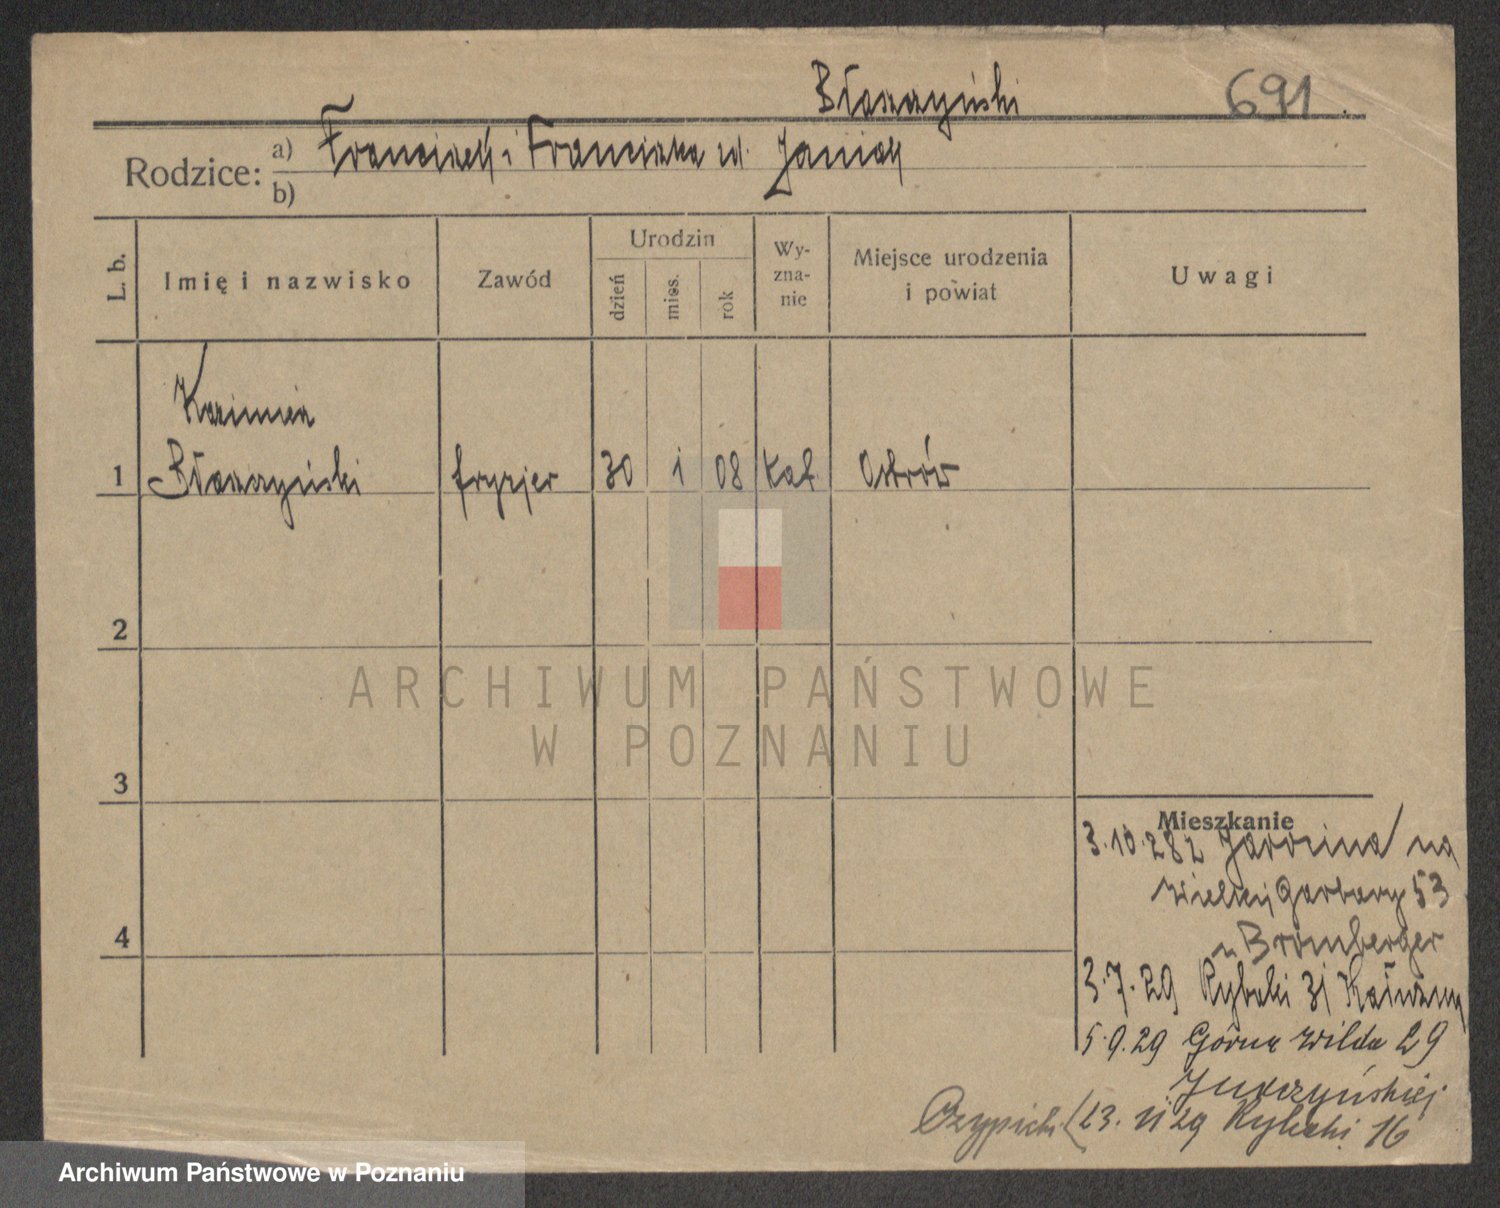 Błaszczyński
691.
Rodzice: a) Franciszek i Franciszka ur. Janicka
b)
L. b.
Imię i nazwisko
Zawód
Urodzin
dzień
mies.
rok
Wy-
zna-
nie
Miejsce urodzenia
i powiat
Uwagi
Kazimierz
1 Błaszczyński fryzjer 30 1 08 Kat. Ostrów
2
ARCHIWUM PAŃSTWOWE
W POZNANIU
3
Mieszkanie
3.10.28 z Jarocina na
Wielkiej Garbary 53
u Bromberger
4
3.7.29 Rybaki 31
5.9.29 Górna Wilda 29
23. VI 29 Rybaki 16
Archiwum Państwowe w Poznaniu